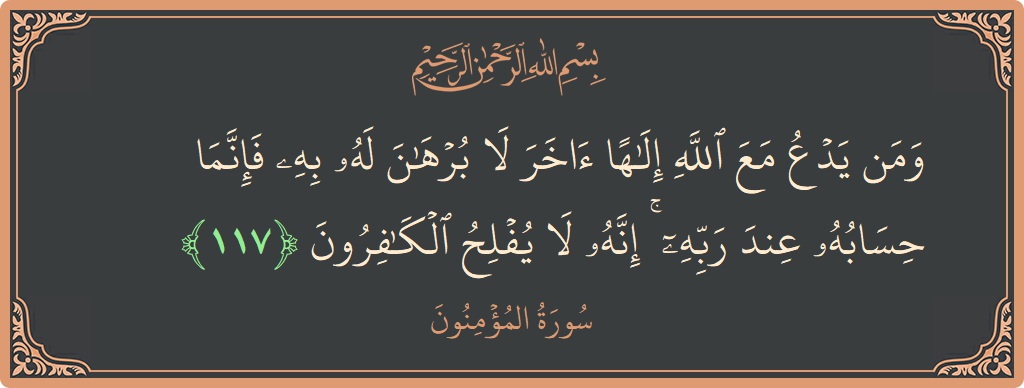 بِسْمِ اللَّهِ الرَّحْمَٰنِ الرَّحِيمِ
وَمَن يَدْعُ مَعَ ٱللَّهِ إِلَـٰهًا ءَاخَرَ لَا بُرْهَـٰنَ لَهُۥ بِهِۦ فَإِنَّمَا
حِسَابُهُۥ عِندَ رَبِّهِۦٓ ۚ إِنَّهُۥ لَا يُفْلِحُ ٱلْكَـٰفِرُونَ ﴿١١٧﴾
سُورَةُ المُؤْمِنُونَ